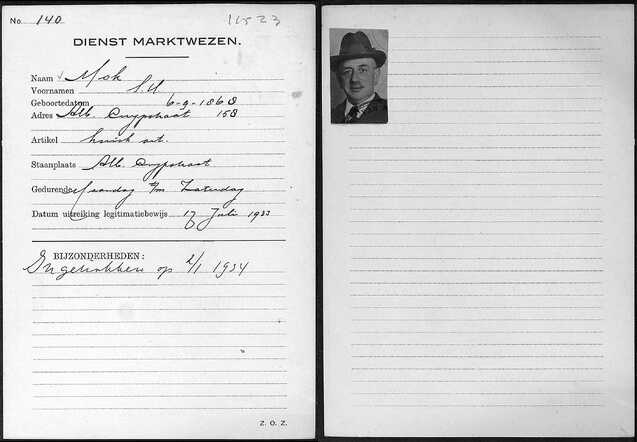 No. 140 11523
DIENST MARKTWEZEN.
Naam v. Mok
Voornamen S.U
Geboortedatum 6-9-1868
Adres Alb. Cuypstraat 158
Artikel huish art.
Staanplaats Alb. Cuypstraat
Gedurende Maandag t/m Zaterdag
Datum uitreiking legitimatiebewijs 17 Juli 1933
BIJZONDERHEDEN:
Ingetrokken op 2/1 1934
Z. O. Z.